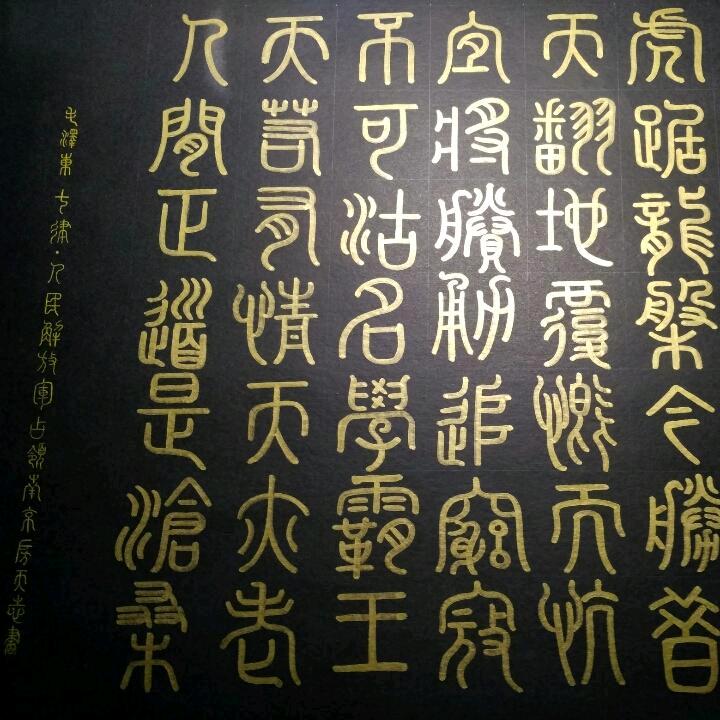 虎踞龍槃今勝昔
天翻地覆慨而忼
宜將賸勈追窮寇
不可沽名學霸王
天若有情天亦老
人間正道是滄桑
毛澤東七律·人民解放軍占領南京房天志書